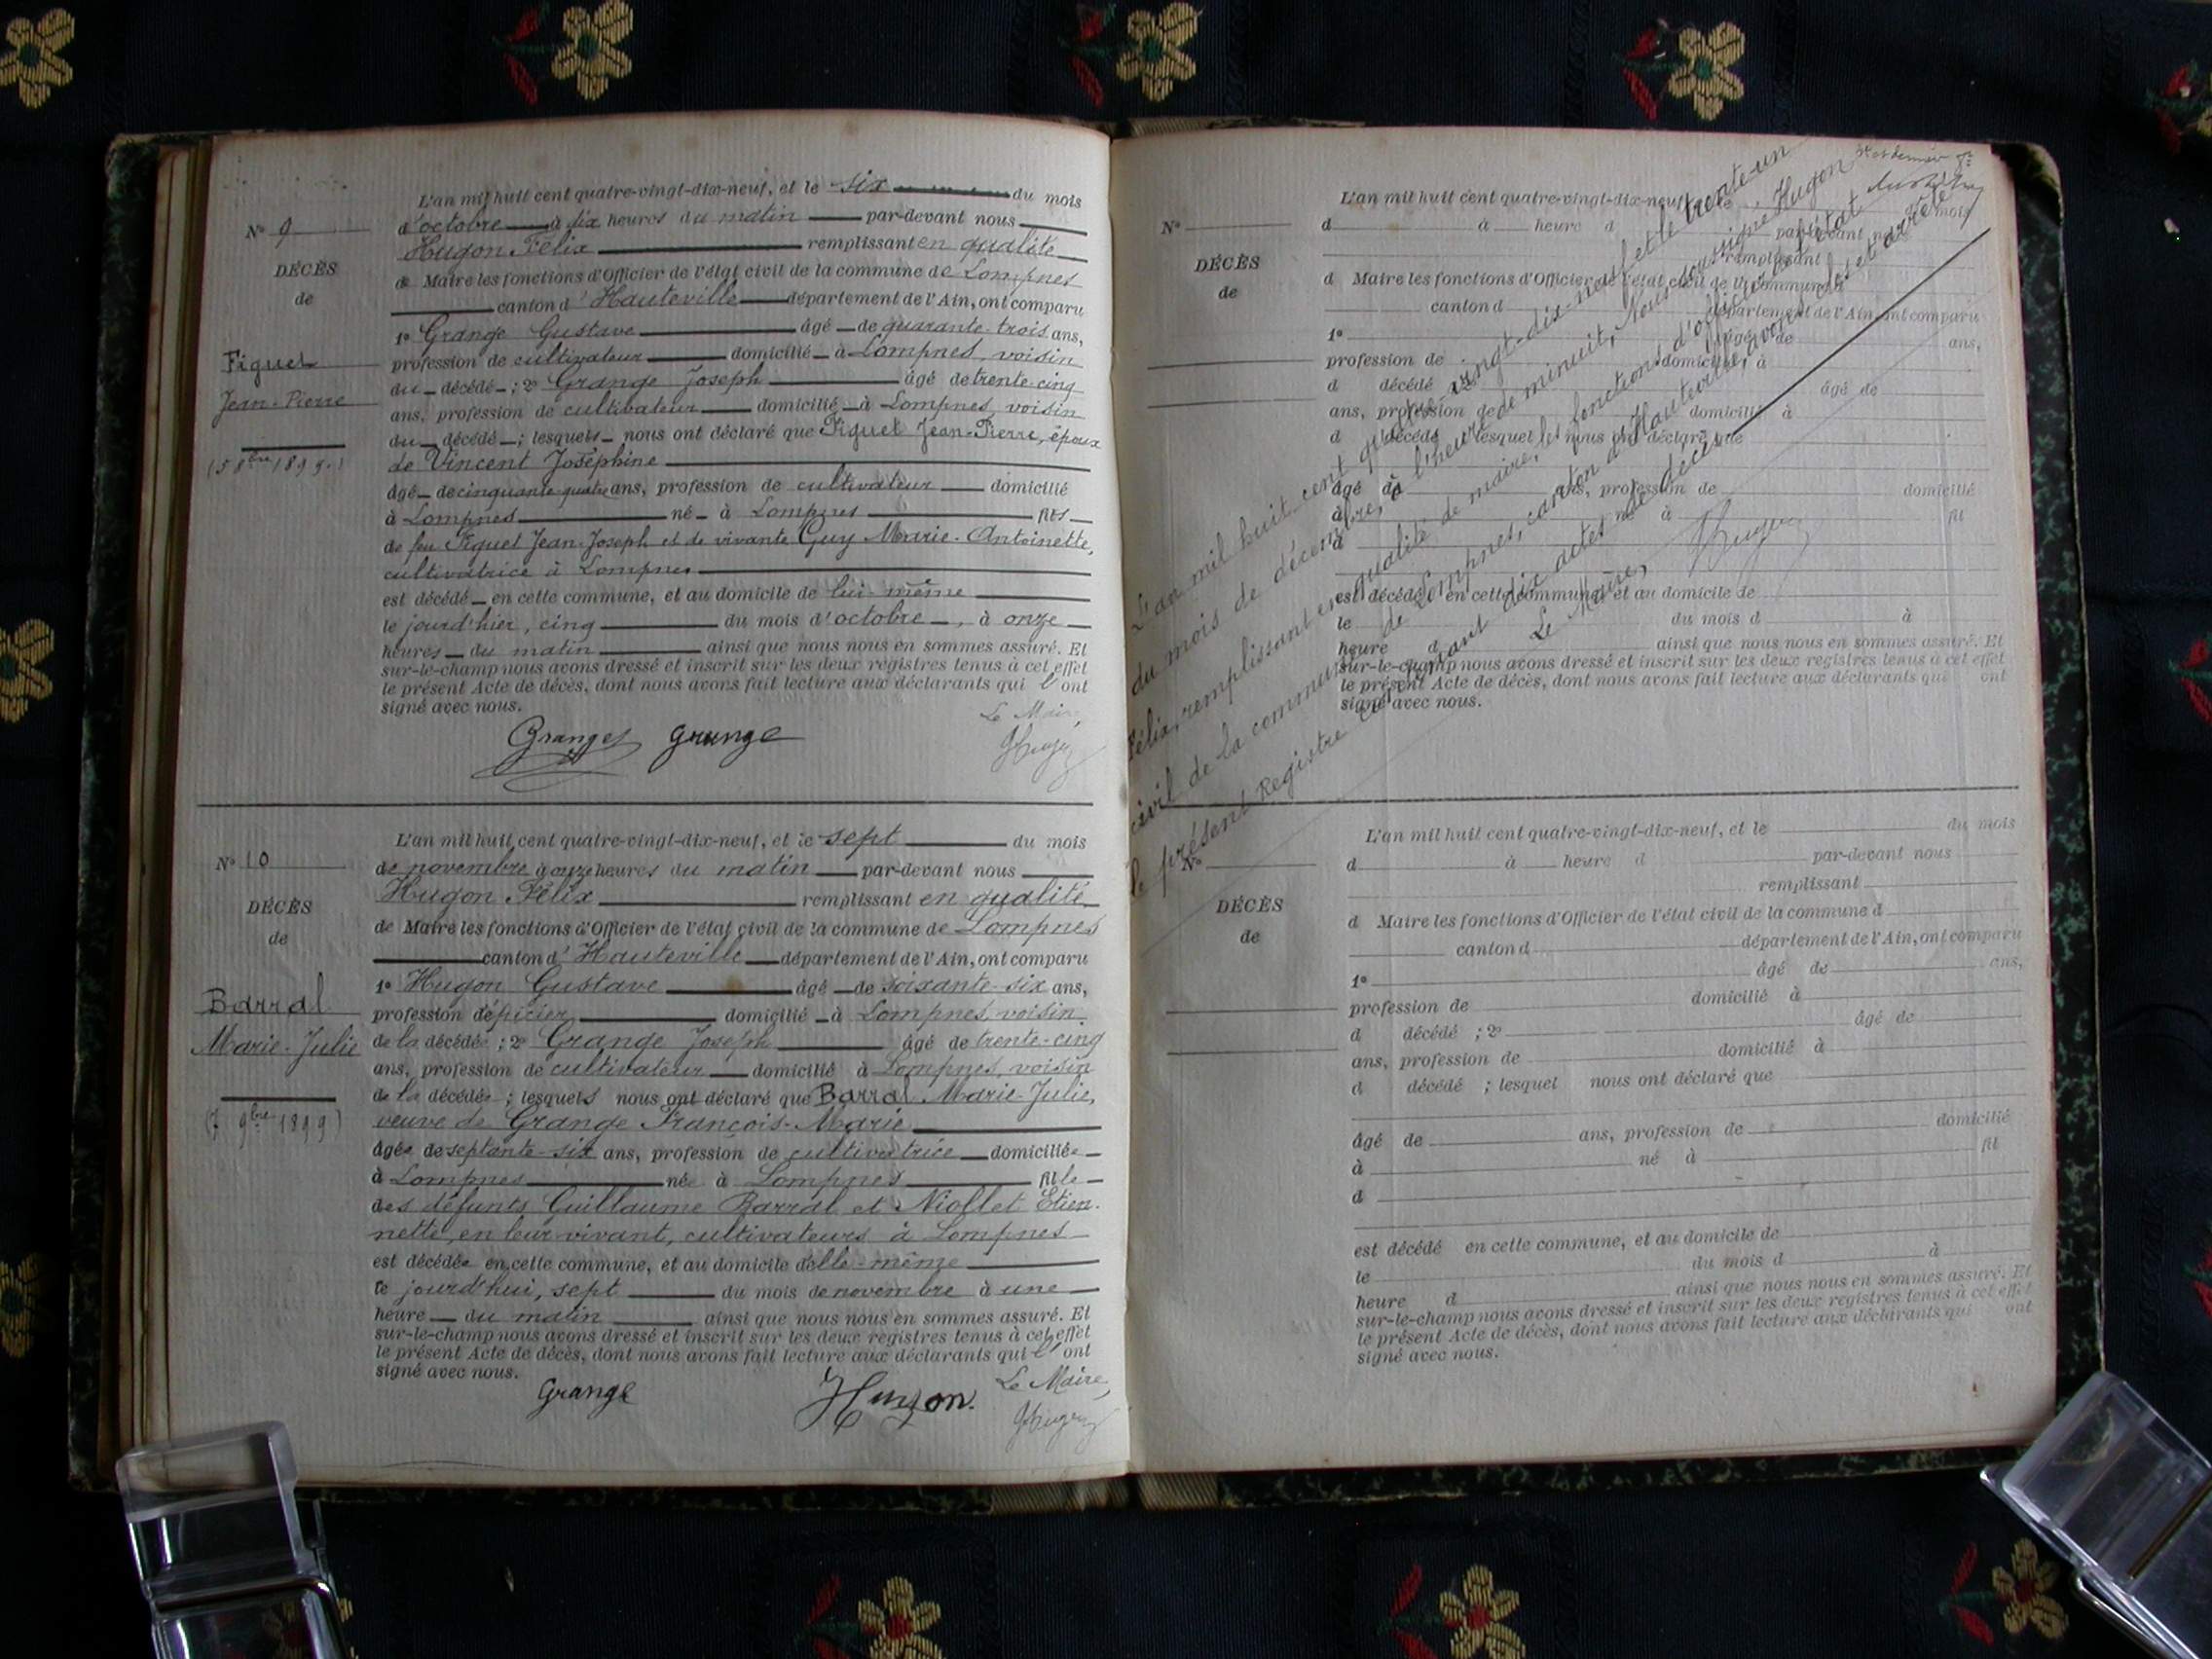 N° 9
DÉCÈS
de
Figuet
Jean-Pierre
(5 8bre 1899.)
L'an mil huit cent quatre-vingt-dix-neuf, et le six du mois
d'octobre à dix heures du matin par-devant nous
Hugon Félix remplissant en qualité
de Maire les fonctions d'Officier de l'état civil de la commune de Lompnes
canton d'Hauteville département de l'Ain, ont comparu
1° Grange Gustave âgé de quarante-trois ans,
profession de cultivateur domicilié à Lompnes, voisin
du décédé ; 2° Grange Joseph âgé de trente-cinq
ans, profession de cultivateur domicilié à Lompnes, voisin
du décédé ; lesquels nous ont déclaré que Figuet Jean-Pierre, époux
de Vincent Joséphine
âgé de cinquante quatre ans, profession de cultivateur domicilié
à Lompnes né à Lompnes fils
de feu Figuet Jean-Joseph et de vivante Guy Marie-Antoinette,
cultivatrice à Lompnes
est décédé en cette commune, et au domicile de lui-même
le jourd'hier, cinq du mois d'octobre, à onze
heures du matin ainsi que nous nous en sommes assuré. Et
sur-le-champ nous avons dressé et inscrit sur les deux registres tenus à cet effet
le présent Acte de décès, dont nous avons fait lecture aux déclarants qui l'ont
signé avec nous.
Le Maire,
Grange Grange FHugon
N° 10
DÉCÈS
de
Barral
Marie-Julie
(7 9bre 1899)
L'an mil huit cent quatre-vingt-dix-neuf, et le sept du mois
de novembre à onze heures du matin par-devant nous
Hugon Félix remplissant en qualité
de Maire les fonctions d'Officier de l'état civil de la commune de Lompnes
canton d'Hauteville département de l'Ain, ont comparu
1° Hugon Gustave âgé de soixante-six ans,
profession d'épicier, domicilié à Lompnes, voisin
de la décédée ; 2° Grange Joseph âgé de trente-cinq
ans, profession de cultivateur domicilié à Lompnes, voisin
de la décédée ; lesquels nous ont déclaré que Barral Marie-Julie,
veuve de Grange François-Marie
âgée de septante-six ans, profession de cultivatrice domiciliée
à Lompnes née à Lompnes fille
des défunts Guillaume Barral et Niollet Etien-
nette, en leur vivant, cultivateurs à Lompnes
est décédée en cette commune, et au domicile d'elle-même
le jourd'hui, sept du mois de novembre à une
heure du matin ainsi que nous nous en sommes assuré. Et
sur-le-champ nous avons dressé et inscrit sur les deux registres tenus à cet effet
le présent Acte de décès, dont nous avons fait lecture aux déclarants qui l'ont
signé avec nous.
Le Maire,
Grange Hugon. FHugon
N°
DÉCÈS
de
L'an mil huit cent quatre-vingt-dix-neuf, et le du mois
d à heure d par-devant nous
remplissant
d Maire les fonctions d'Officier de l'état civil de la commune d
canton d département de l'Ain, ont comparu
1° âgé de ans,
profession de domicilié à
d décédé ; 2° âgé de
ans, profession de domicilié à
d décédé ; lesquel nous ont déclaré que
âgé de ans, profession de domicilié
à né à fil
d
est décédé en cette commune, et au domicile de
le du mois d à
heure d ainsi que nous nous en sommes assuré. Et
sur-le-champ nous avons dressé et inscrit sur les deux registres tenus à cet effet
le présent Acte de décès, dont nous avons fait lecture aux déclarants qui ont
signé avec nous.
L'an mil huit cent quatre-vingt-dix-neuf et le trente-un
du mois de décembre, à l'heure de minuit, Nous soussigné Hugon
Félix, remplissant en qualité de maire, les fonctions d'officier de l'état
civil de la commune de Lompnes, canton d'Hauteville, avons clos et arrêté
le présent Registre contenant dix actes de décès.
Le Maire,
FHugon
N°
DÉCÈS
de
L'an mil huit cent quatre-vingt-dix-neuf, et le du mois
d à heure d par-devant nous
remplissant
d Maire les fonctions d'Officier de l'état civil de la commune d
canton d département de l'Ain, ont comparu
1° âgé de ans,
profession de domicilié à
d décédé ; 2° âgé de
ans, profession de domicilié à
d décédé ; lesquel nous ont déclaré que
âgé de ans, profession de domicilié
à né à fil
d
est décédé en cette commune, et au domicile de
le du mois d à
heure d ainsi que nous nous en sommes assuré. Et
sur-le-champ nous avons dressé et inscrit sur les deux registres tenus à cet effet
le présent Acte de décès, dont nous avons fait lecture aux déclarants qui ont
signé avec nous.